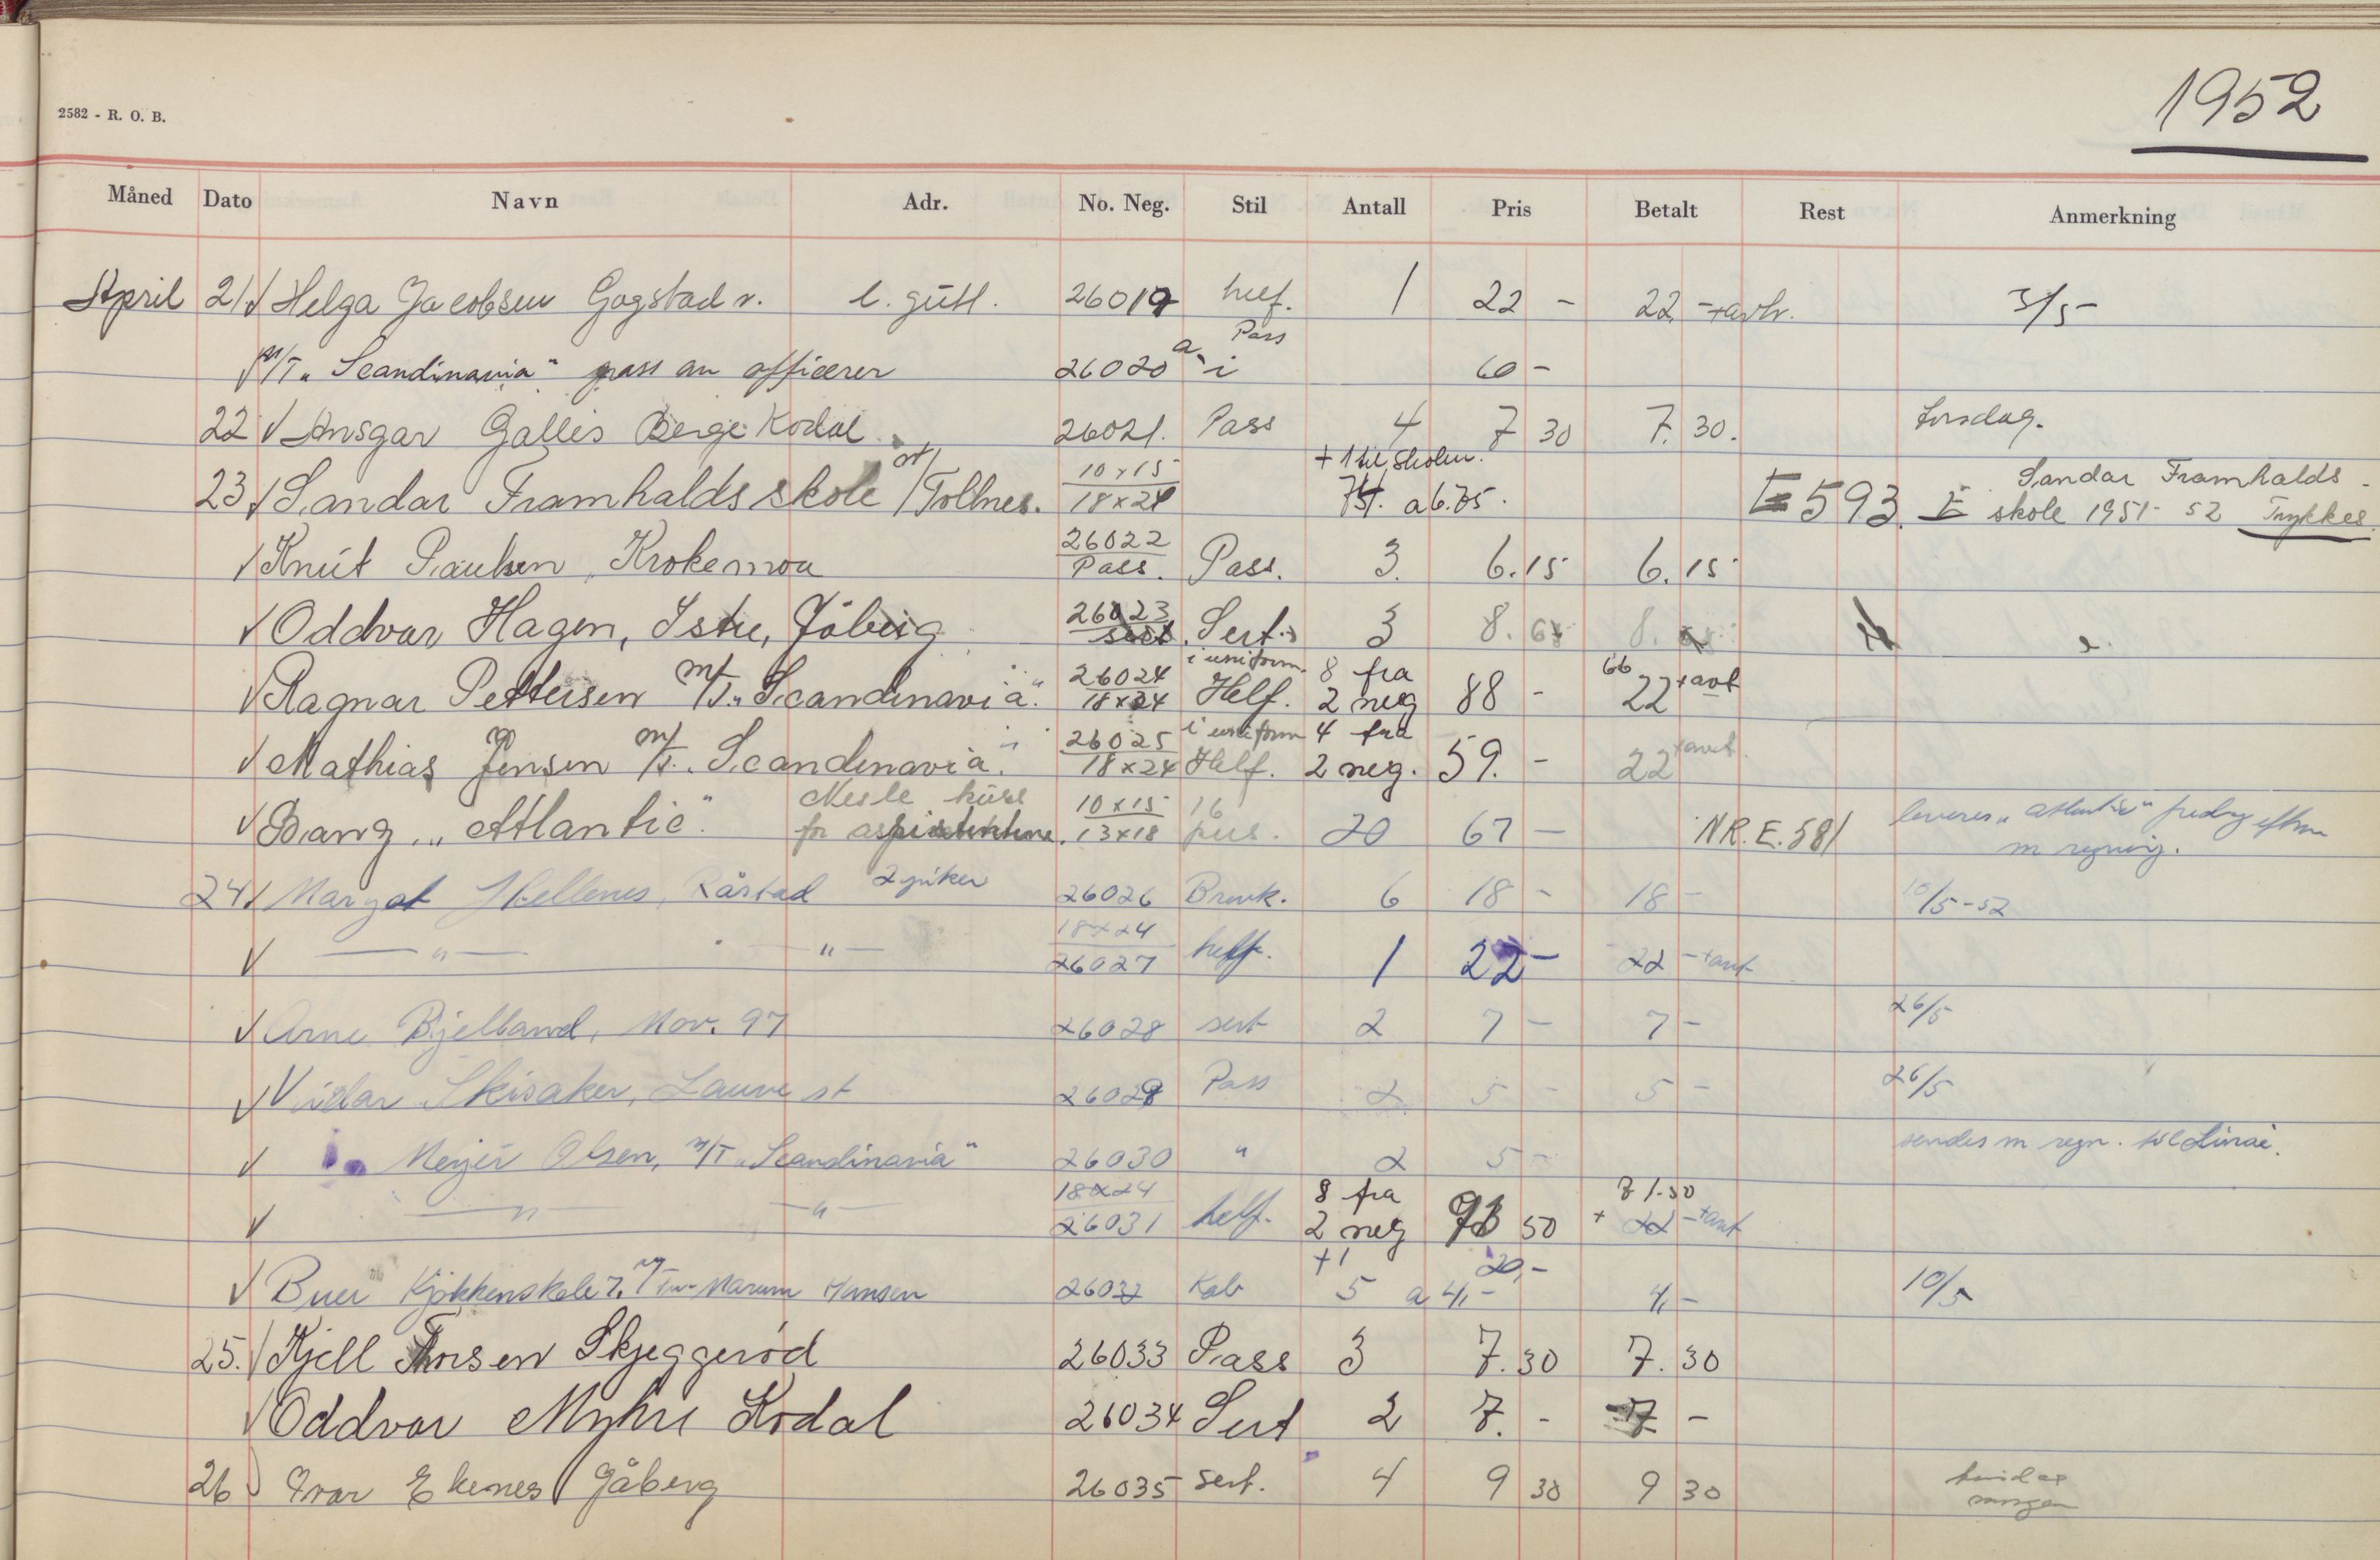 1952
2582 - R. O. B.
Måned Dato Navn Adr. No. Neg. Stil Antall Pris Betalt Rest Anmerkning
April 21 √ Helga Jacobsen Gogstad v. l. gutt. 26019 helf. 1 22 - 22 - 3/5-
√ M/T „Scandinavia" pass av officerer 26020 a - i Pass 60 -
22 √ Ansgar Gallis Berge Kodal 26021. Pass 4 7 30 7. 30. torsdag.
+ 1 til skolen.
23 √ Sandar Framhaldsskole / Tollnes. 10 x 15 18 x 24 a 6.75. E 593. Sandar Framhalds-
skole 1951-52 Trykkes
√ Knut Paulsen, Krokemoa 26022 Pass. Pass. 3. 6. 15 6. 15
√ Oddvar Hagen, Istre, Jåberg 26023 Sert. 3 8. 8.
√ Ragnar Pettersen M/T. „Scandinavia" 26024 18 x 24 i uniform Helf. 8 fra 2 neg 88 - 66 22 + avt
√ Mathias Jensen M/T. „Scandinavia" 26025 18 x 24 i uniform Helf. 4 fra 2 neg. 59. - 22 + avt.
√ Bang, „Atlantic" for 10 x 15 13 x 18 16 pers. 20 67 - NR. E. 581 leveres „Atlantic" fredag
m regning.
24 √ Margot Råstad 2 piker 26026 Brevk. 6 18 - 18 - 10/5-52
√ — " — — " — 18 x 24 26027 helf. 1 22 - 22 - + avt
√ Arne Bjelland, Nov. 97 26028 sert 2 7 - 7 - 26/5
√ Vidar Skisaker, Lauve st 26029 Pass 2 5 - 5 - 26/5
√ Meyer Olsen, M/T „Scandinavia" 26030 " 2 5 - sendes m regn. til
√ — " — — " — 18 x 24 26031 helf. 8 fra 2 neg 93 50 71.50 + 22 - + avt
+1 20,-
√ Buer Kjøkkenskole Hansen 26032 Kab 5 a 4,- 4,- 10/5
25. √ Kjell Thorsen Skjeggerød 26033 Pass 3 7. 30 7. 30
√ Oddvar Myhre Kodal 26034 Sert 2 7. - 7 -
26 Ivar Ekenes Jåberg 26035 sert. 4 9 30 9 30
morgen